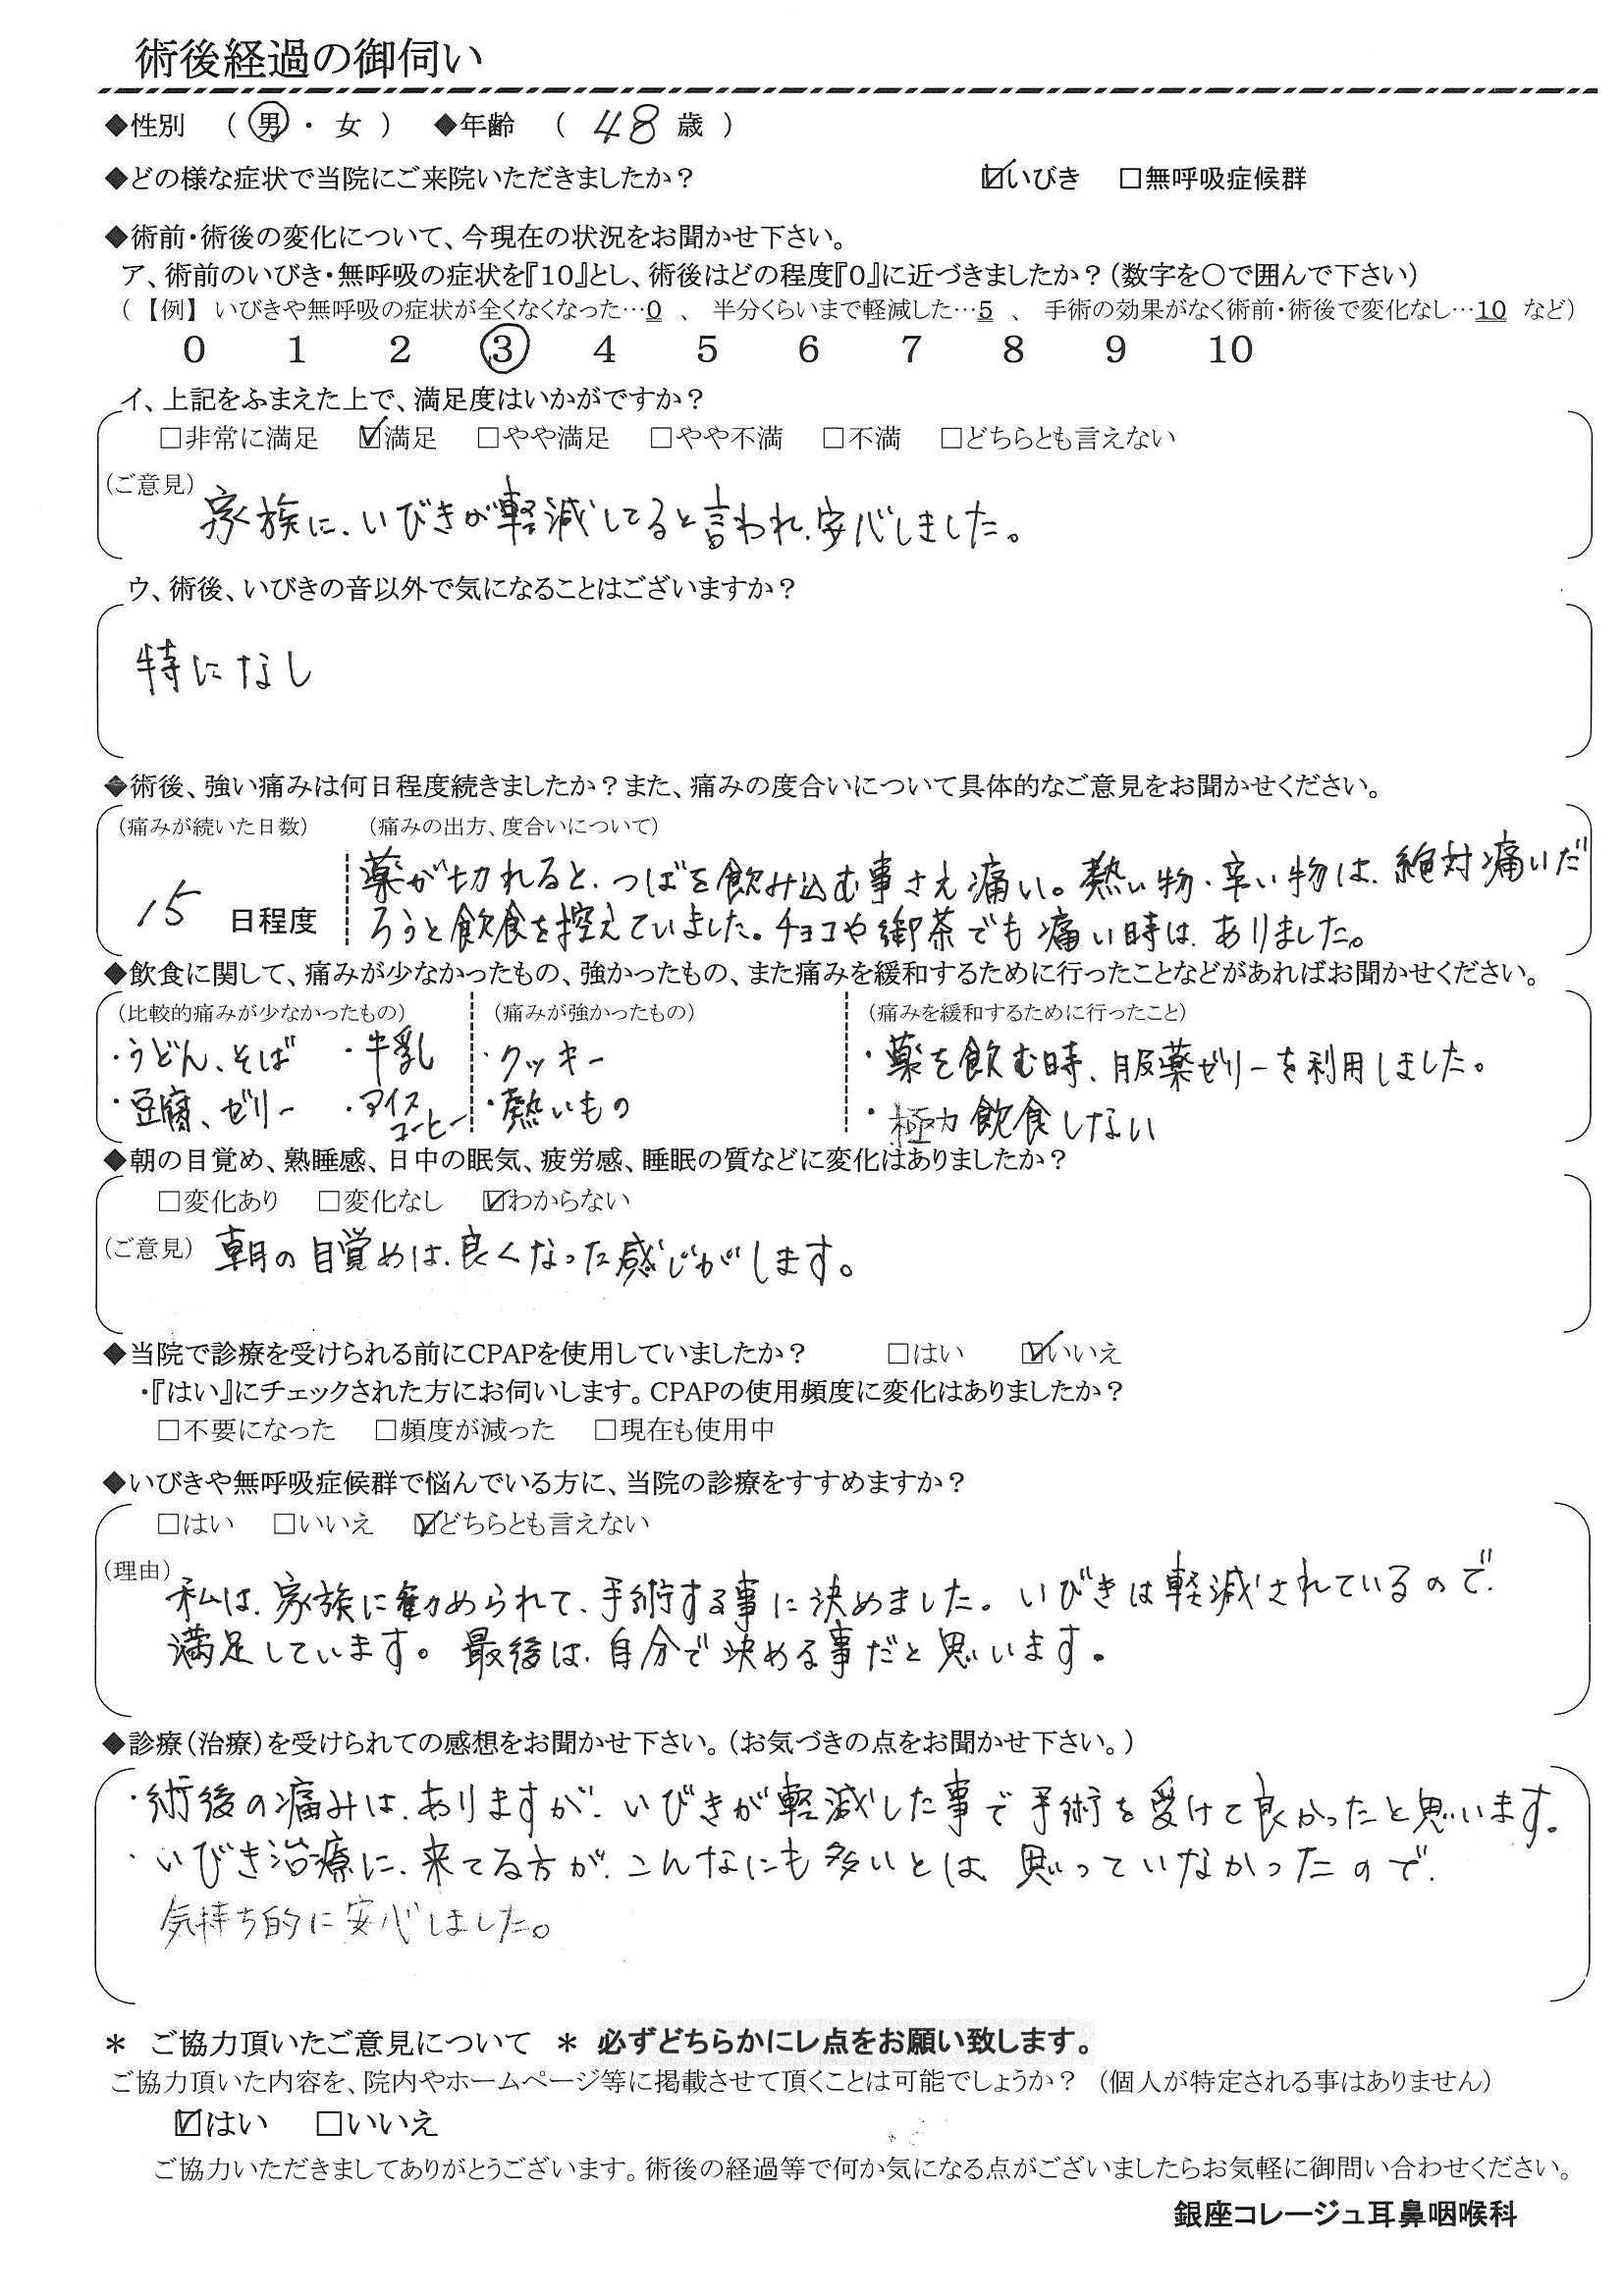 術後経過の御伺い
◆性別 （ 男 ・ 女 ） ◆年齢 （ 48 歳 ）
◆どの様な症状で当院にご来院いただきましたか？ ☑いびき □無呼吸症候群
◆術前・術後の変化について、今現在の状況をお聞かせ下さい。
ア、術前のいびき・無呼吸の症状を『10』とし、術後はどの程度『0』に近づきましたか？（数字を○で囲んで下さい）
（ 【例】 いびきや無呼吸の症状が全くなくなった…0 、 半分くらいまで軽減した…5 、 手術の効果がなく術前・術後で変化なし…10 など）
0 1 2 ③ 4 5 6 7 8 9 10
イ、上記をふまえた上で、満足度はいかがですか？
□非常に満足 ☑満足 □やや満足 □やや不満 □不満 □どちらとも言えない
（ご意見） 家族に、いびきが軽減してると言われ、安心しました。
ウ、術後、いびきの音以外で気になることはございますか？
特になし
◆術後、強い痛みは何日程度続きましたか？また、痛みの度合いについて具体的なご意見をお聞かせください。
（痛みが続いた日数） （痛みの出方、度合いについて）
15 日程度 薬が切れると、つばを飲み込む事さえ痛い。熱い物・辛い物は、絶対痛いだ
ろうと飲食を控えていました。チョコや御茶でも痛い時は、ありました。
◆飲食に関して、痛みが少なかったもの、強かったもの、また痛みを緩和するために行ったことなどがあればお聞かせください。
（比較的痛みが少なかったもの） （痛みが強かったもの） （痛みを緩和するために行ったこと）
・うどん、そば ・牛乳 ・クッキー ・薬を飲む時、服薬ゼリーを利用しました。
・豆腐、ゼリー ・アイスコーヒー ・熱いもの ・極力飲食しない
◆朝の目覚め、熟睡感、日中の眠気、疲労感、睡眠の質などに変化はありましたか？
□変化あり □変化なし ☑わからない
（ご意見） 朝の目覚めは、良くなった感じがします。
◆当院で診療を受けられる前にCPAPを使用していましたか？ □はい ☑いいえ
・『はい』にチェックされた方にお伺いします。CPAPの使用頻度に変化はありましたか？
□不要になった □頻度が減った □現在も使用中
◆いびきや無呼吸症候群で悩んでいる方に、当院の診療をすすめますか？
□はい □いいえ ☑どちらとも言えない
（理由） 私は、家族に勧められて、手術する事に決めました。いびきは軽減されているので、
満足しています。最後は、自分で決める事だと思います。
◆診療（治療）を受けられての感想をお聞かせ下さい。（お気づきの点をお聞かせ下さい。）
・術後の痛みは、ありますが、いびきが軽減した事で手術を受けて良かったと思います。
・いびき治療に、来てる方が、こんなにも多いとは、思っていなかったので、
気持ち的に安心しました。
＊ ご協力頂いたご意見について ＊ 必ずどちらかにレ点をお願い致します。
ご協力頂いた内容を、院内やホームページ等に掲載させて頂くことは可能でしょうか？（個人が特定される事はありません）
☑はい □いいえ
ご協力いただきましてありがとうございます。術後の経過等で何か気になる点がございましたらお気軽に御問い合わせください。
銀座コレージュ耳鼻咽喉科